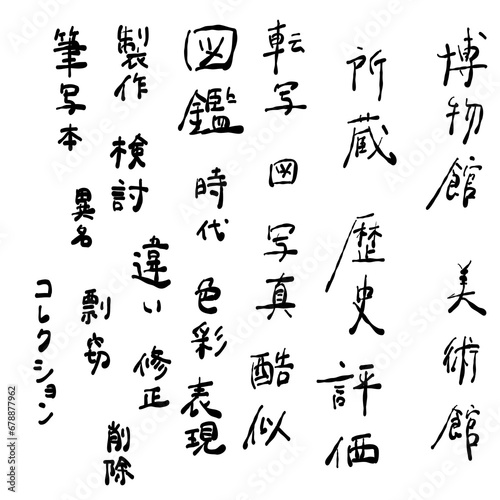 博物館 美術館
所蔵 歴史 評価
転写 図 写真 酷似
図鑑 時代 色彩 表現
製作 検討 違い 修正 削除
筆写本 異名 剽窃
コレクション
Adobe Stock | #678877962